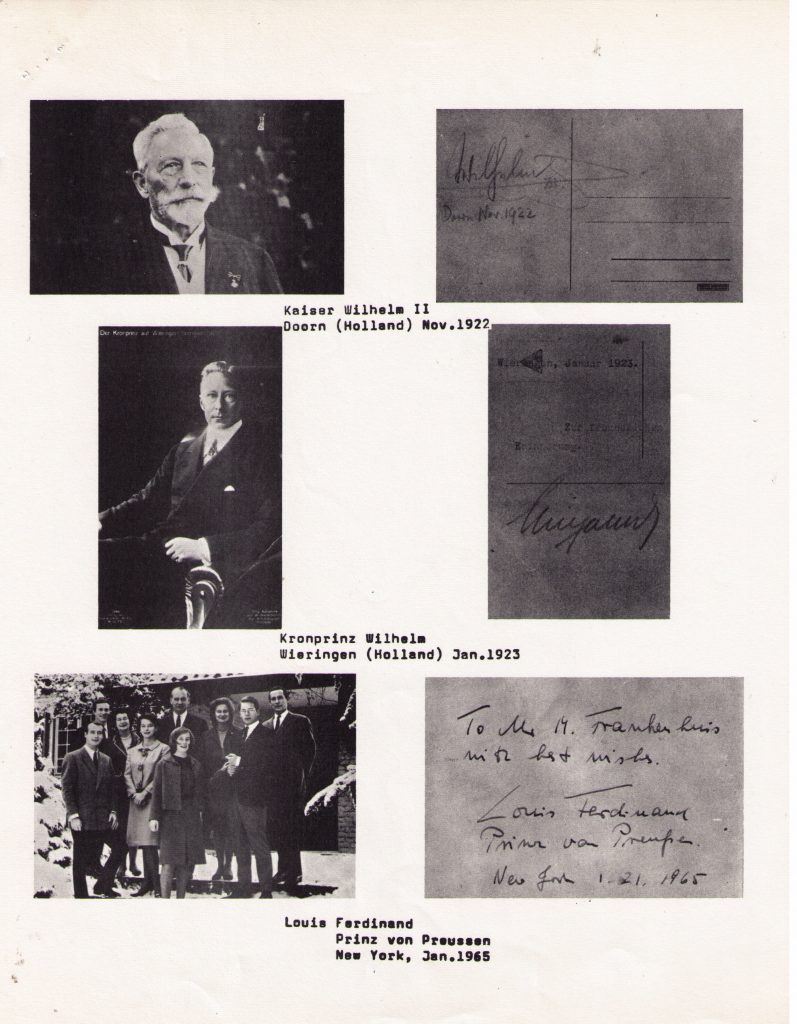 Wilhelm
Doorn Nov. 1922
Kaiser Wilhelm II
Doorn (Holland) Nov.1922
Der Kronprinz auf Wieringen
Wieringen, Januar 1923.
Zur
Erinnerung.
Kronprinz Wilhelm
Wieringen (Holland) Jan.1923
To Mr M. Frankenhuis
with best wishes.
Louis Ferdinand
Prinz von Preußen.
New York 1. 21. 1965
Louis Ferdinand
Prinz von Preussen
New York, Jan.1965